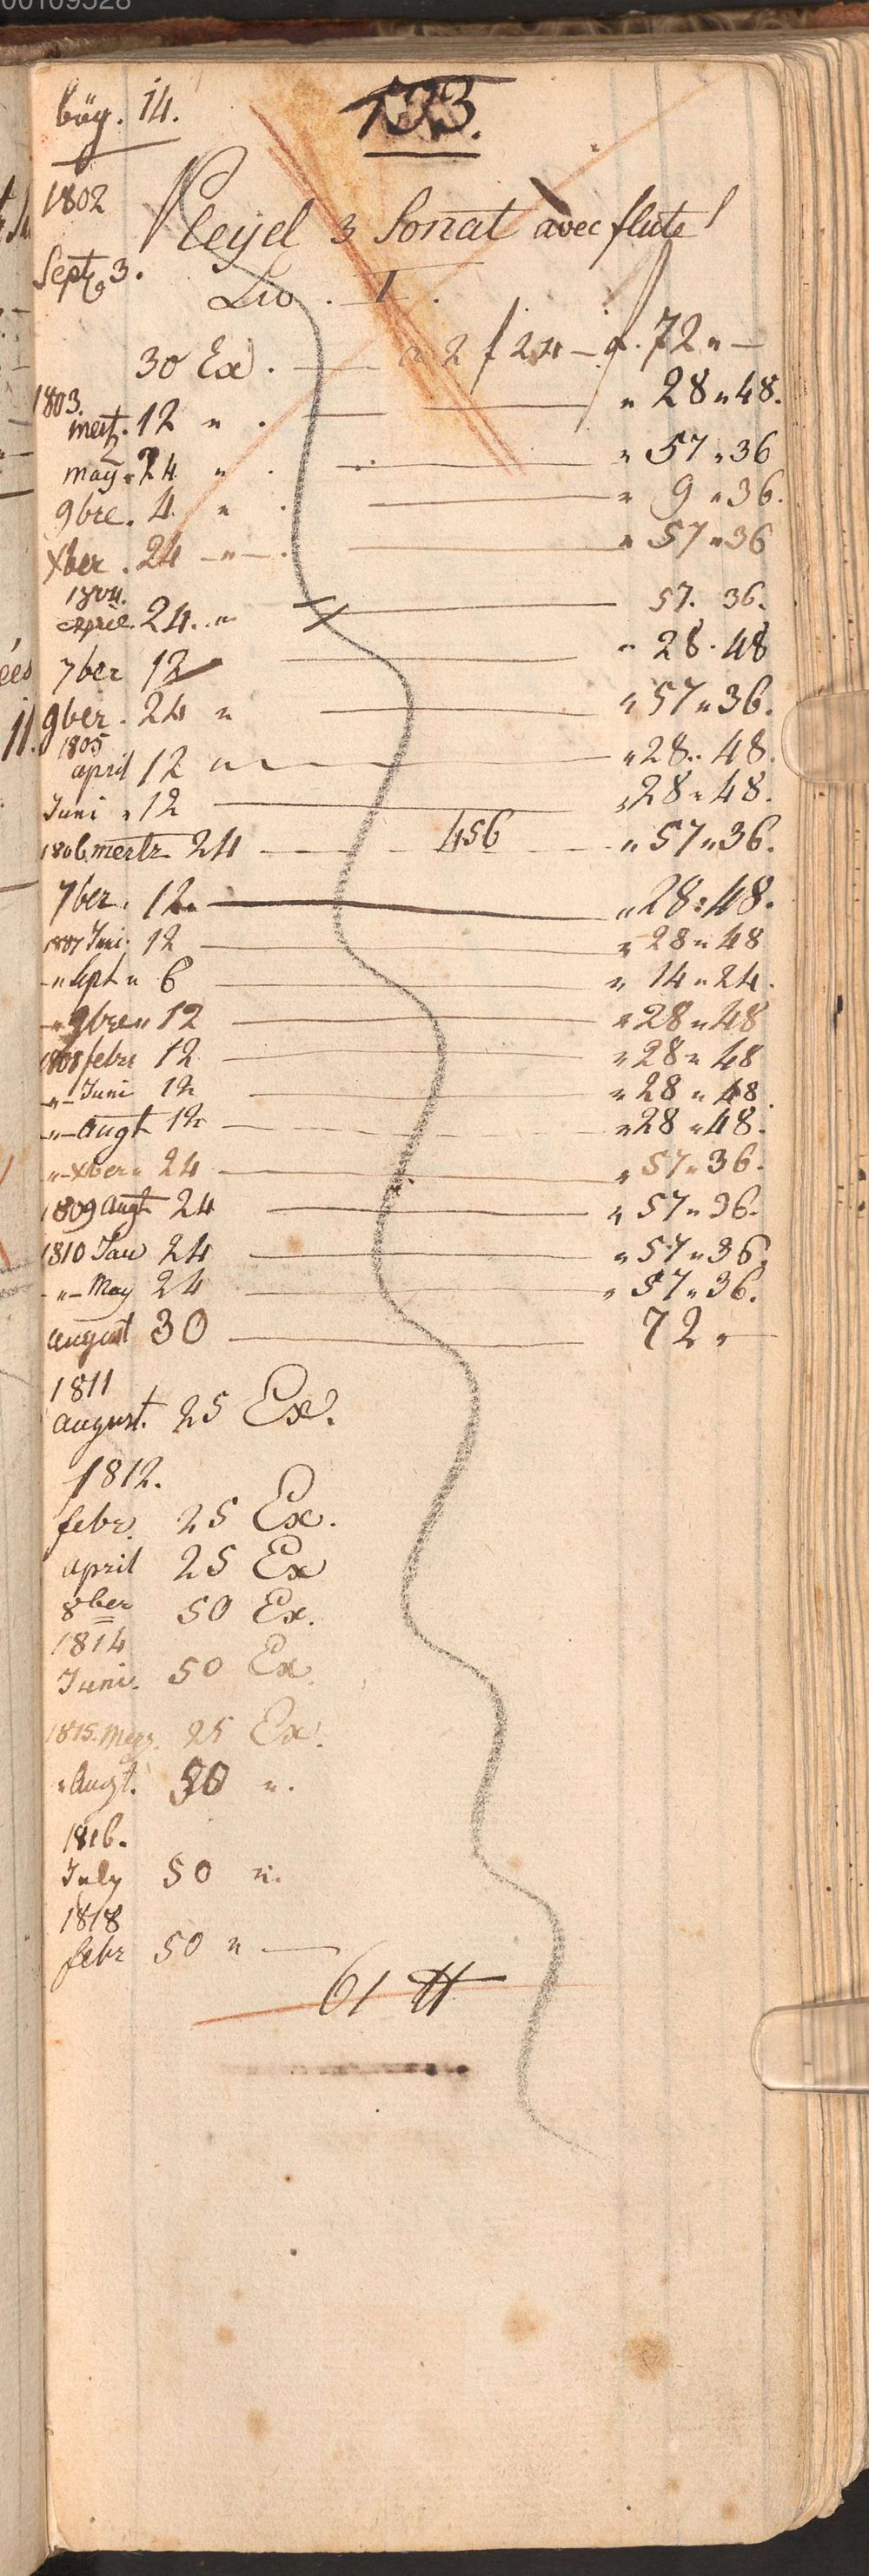 00109528
böy. 14.
133.
1802
Pleyel 3 Sonat avec flute
Septb 3.
Liv. I.
30 Ex. — a 2 f 24 — f. 72 " —
1803.
mertz. 12 " . — " 28 " 48.
may. 24 " . — " 57 " 36
9bre. 4 " . — " 9 " 36.
Xber. 24 — " — . — " 57 " 36
1804.
april. 24. " — 57. 36.
7ber 12 — " 28 . 48
9ber. 24 " — " 57 " 36.
1805
april 12 " — " 28 .. 48.
Juni " 12 — " 28 " 48.
1806 mertz 24 — 456 — " 57 " 36.
7ber. 12. — " 28 : 48.
1807 Juni. 12 — " 28 " 48
— " Sept " 6 — " 14 " 24.
— " 9bre " 12 — " 28 " 48
1808 febr 12 — " 28 " 48
— " — Juni 12 — " 28 " 48.
— " — Augt 12 — " 28 " 48.
— " — Xber " 24 — " 57 " 36.
1809 Augt 24 — " 57 " 36.
1810 Jan 24 — " 57 " 36.
— " — May 24 — " 57 " 36.
august 30 — 72 " —
1811
august. 25 Ex.
1812.
febr. 25 Ex.
april 25 Ex
8ber 50 Ex.
1814
Juni. 50 Ex.
1815. 25 Ex.
" Augt. 50 " .
1816.
July 50 " .
1818
febr 50 " —
61